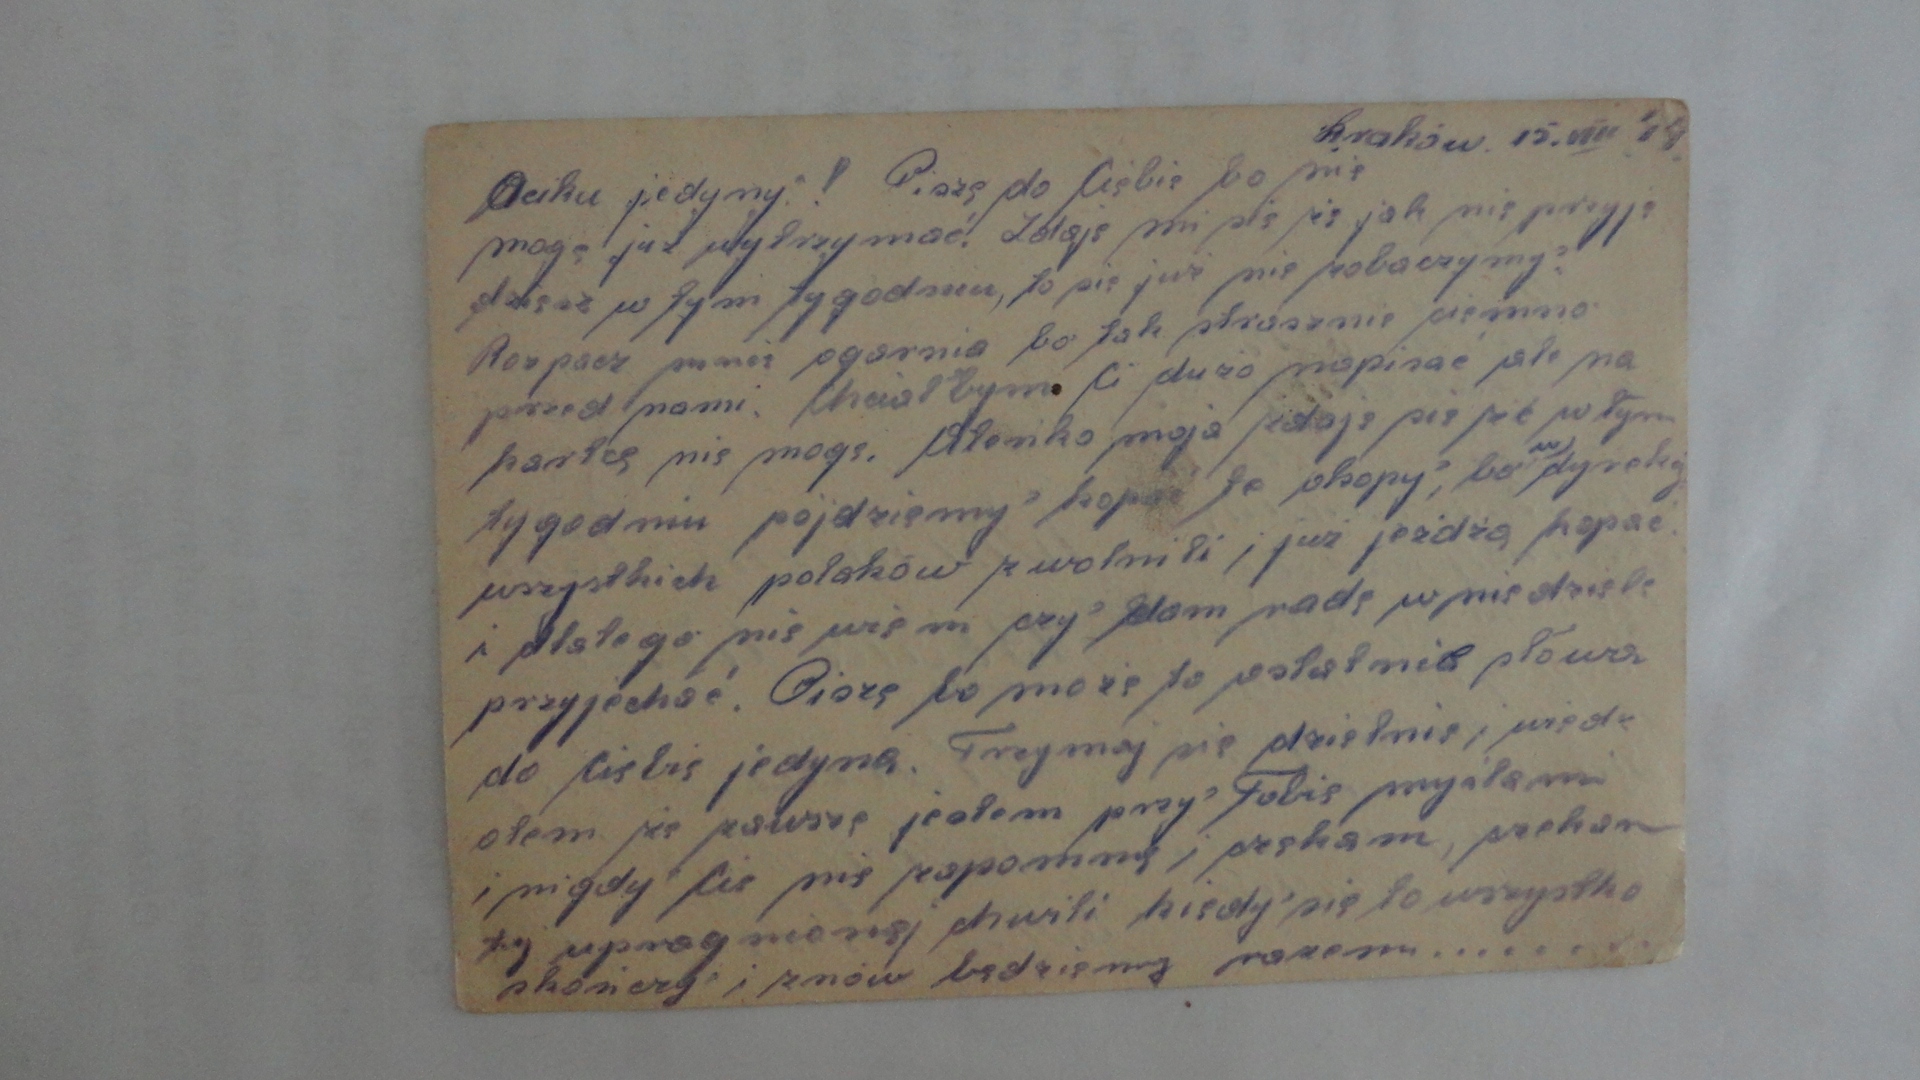 Kraków. 15. VIII 44.
Aciku jedyny! Piszę do Ciebie bo nie
mogę już wytrzymać. Zdaje mi sie że jak nie przyje
dziesz w tym tygodniu, to sie już nie zobaczymy.
Rozpacz mnie ogarnia bo tak strasznie ciemno
przed nami. Chciałbym Ci dużo napisać ale na
kartce nie mogę. Alenko moja zdaje sie że w tym
tygodniu pójdziemy kopać te okopy, bo w dyrekcji
wszystkich polaków zwolnili i już jeżdżą kopać.
i dlatego nie wiem czy dam rade w niedziele
przyjechać. Piszę bo może to ostatnie słowa
do Ciebie jedyna. Trzymaj sie dzielnie i wiedz
otem że zawsze jestem przy Tobie myślami
i nigdy Cie nie zapomnę i czekam, czekam
tej upragnionej chwili kiedy sie to wszystko
skończy i znów będziemy razem.........